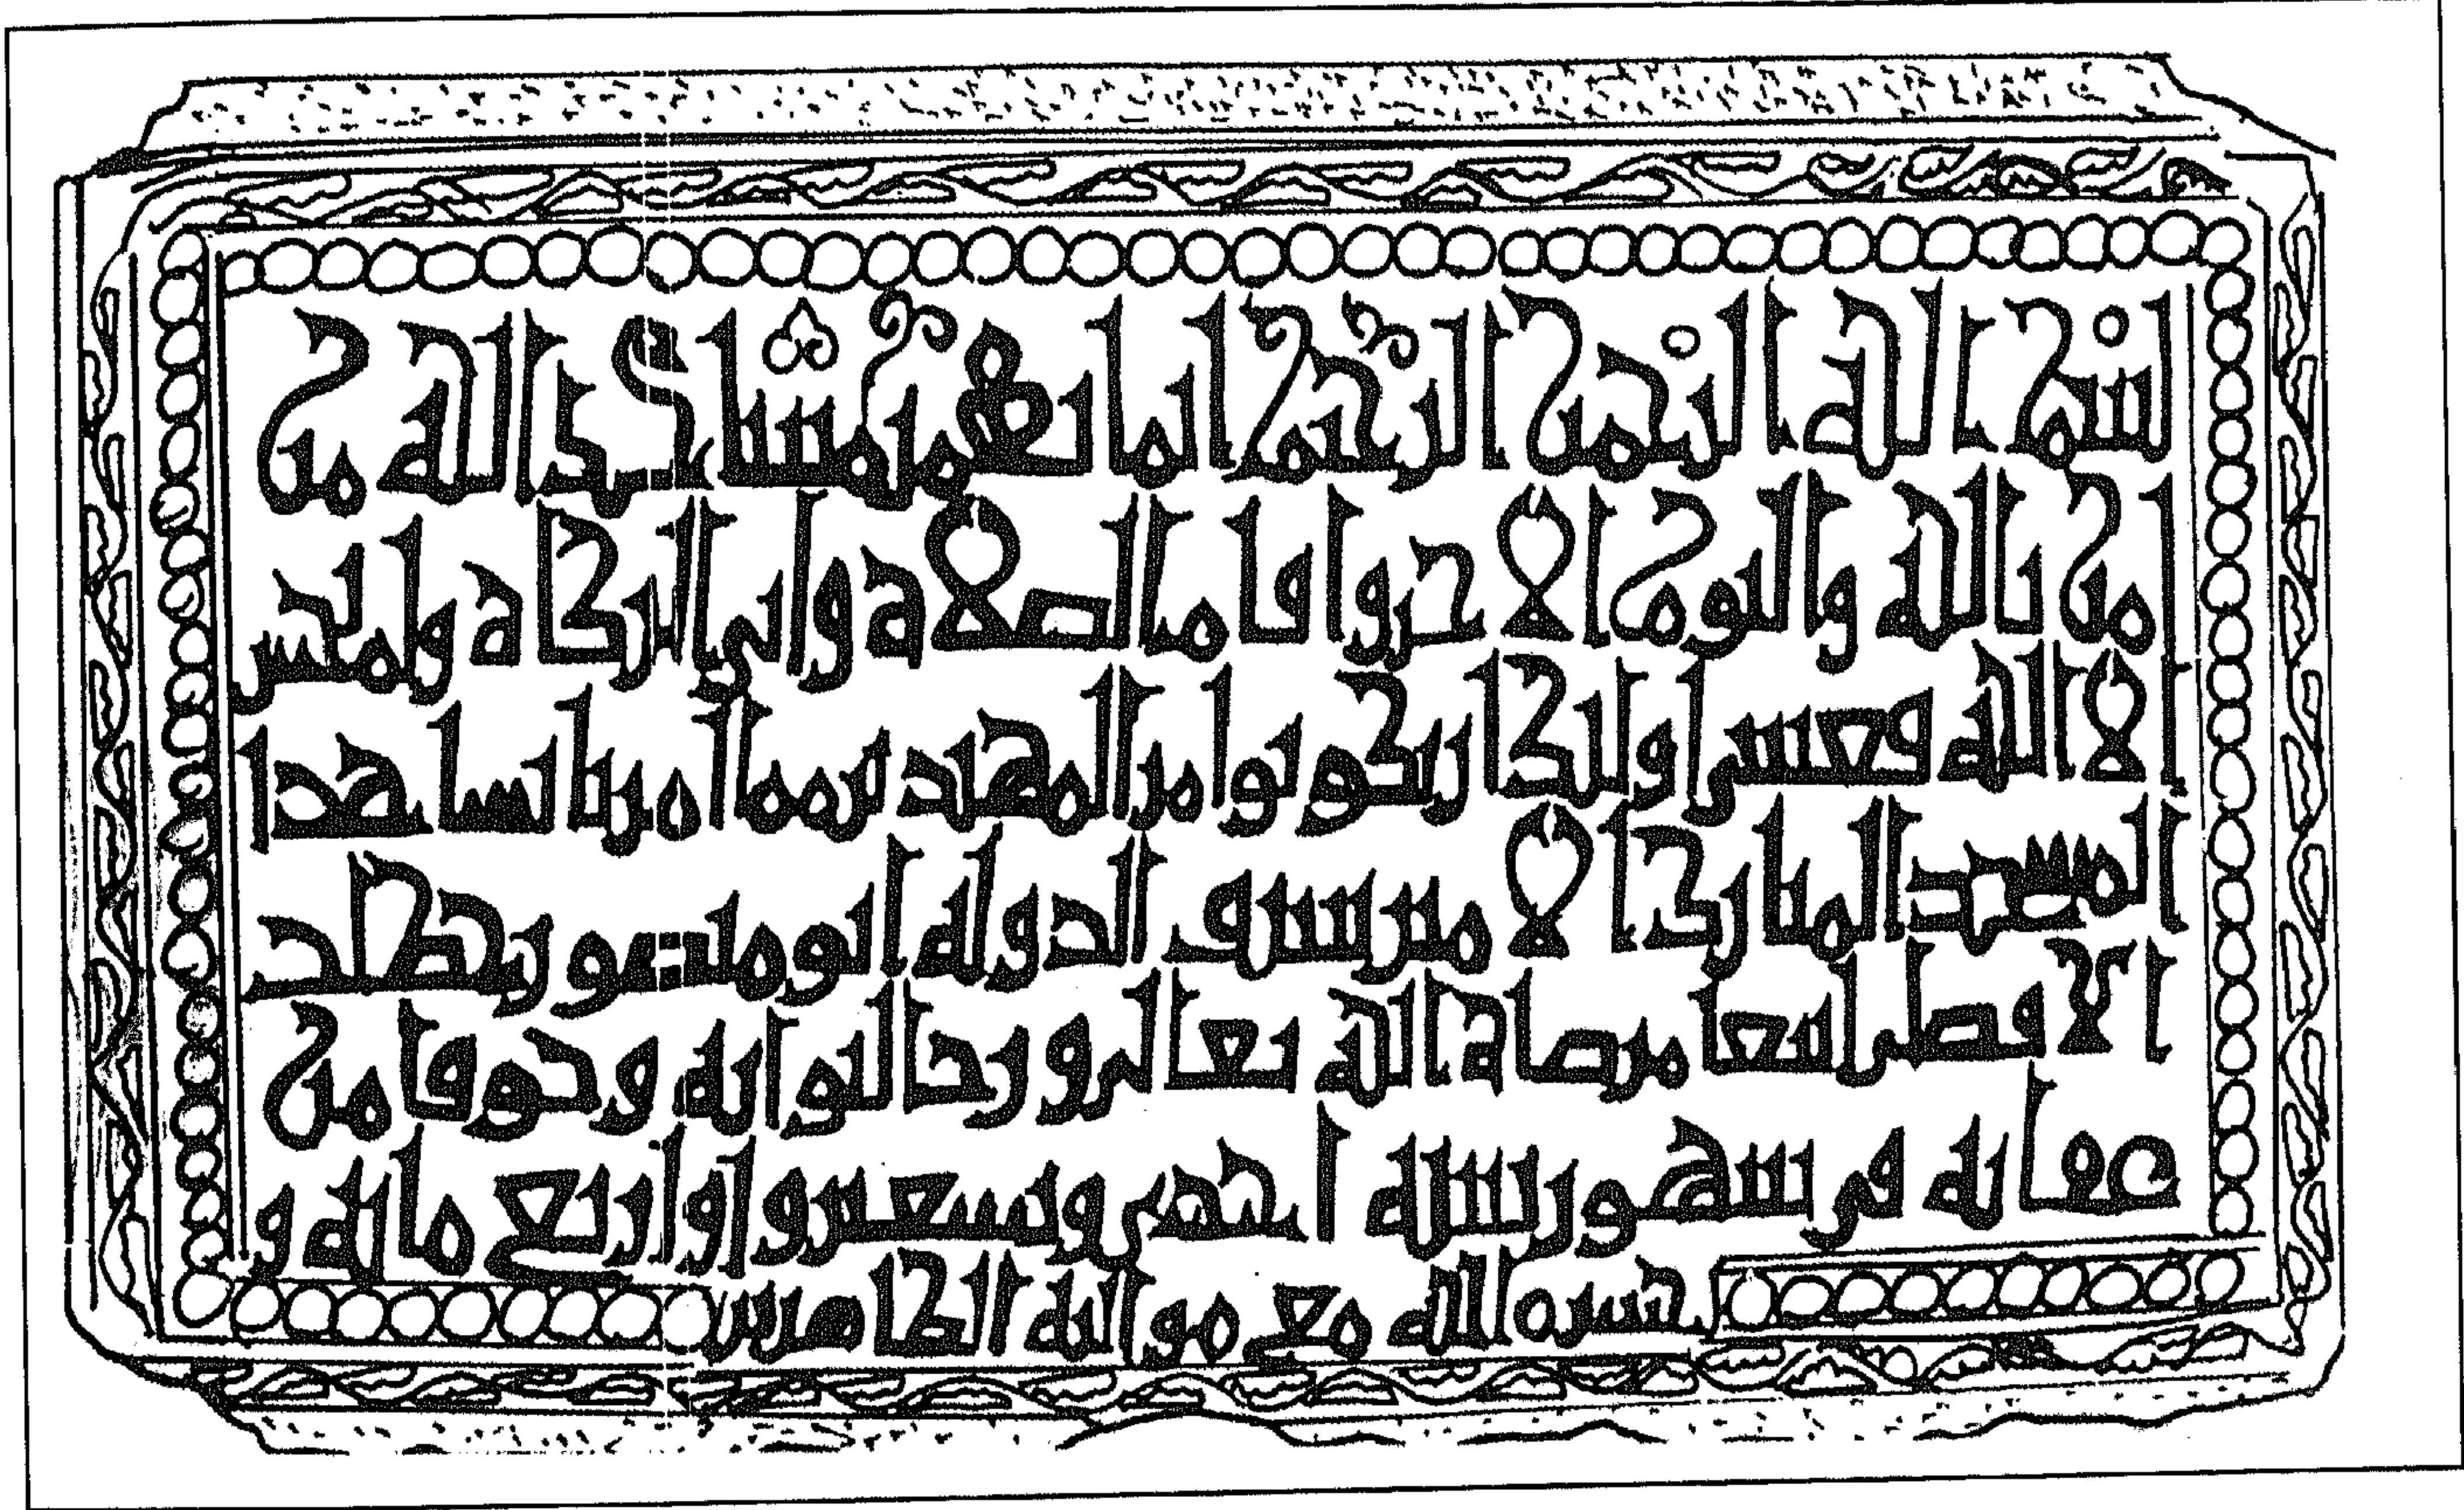 بسم الله الرحمن الرحيم انما يعمر مساجد الله من
امن بالله واليوم الاخر واقام الصلاة واتى الزكاة ولم يخش
الا الله فعسى اولئك ان يكونوا من المهتدين مما امر بانشا هذا
المسجد المبارك الامير سيف الدولة ابو منصور
الافضلي ابتغا مرضاة الله تعالى ورجا لثوابه وخوفا من
عقابه في شهور سنة احدى وتسعين واربع مائه و
حشره الله مع مواليه الطاهرين